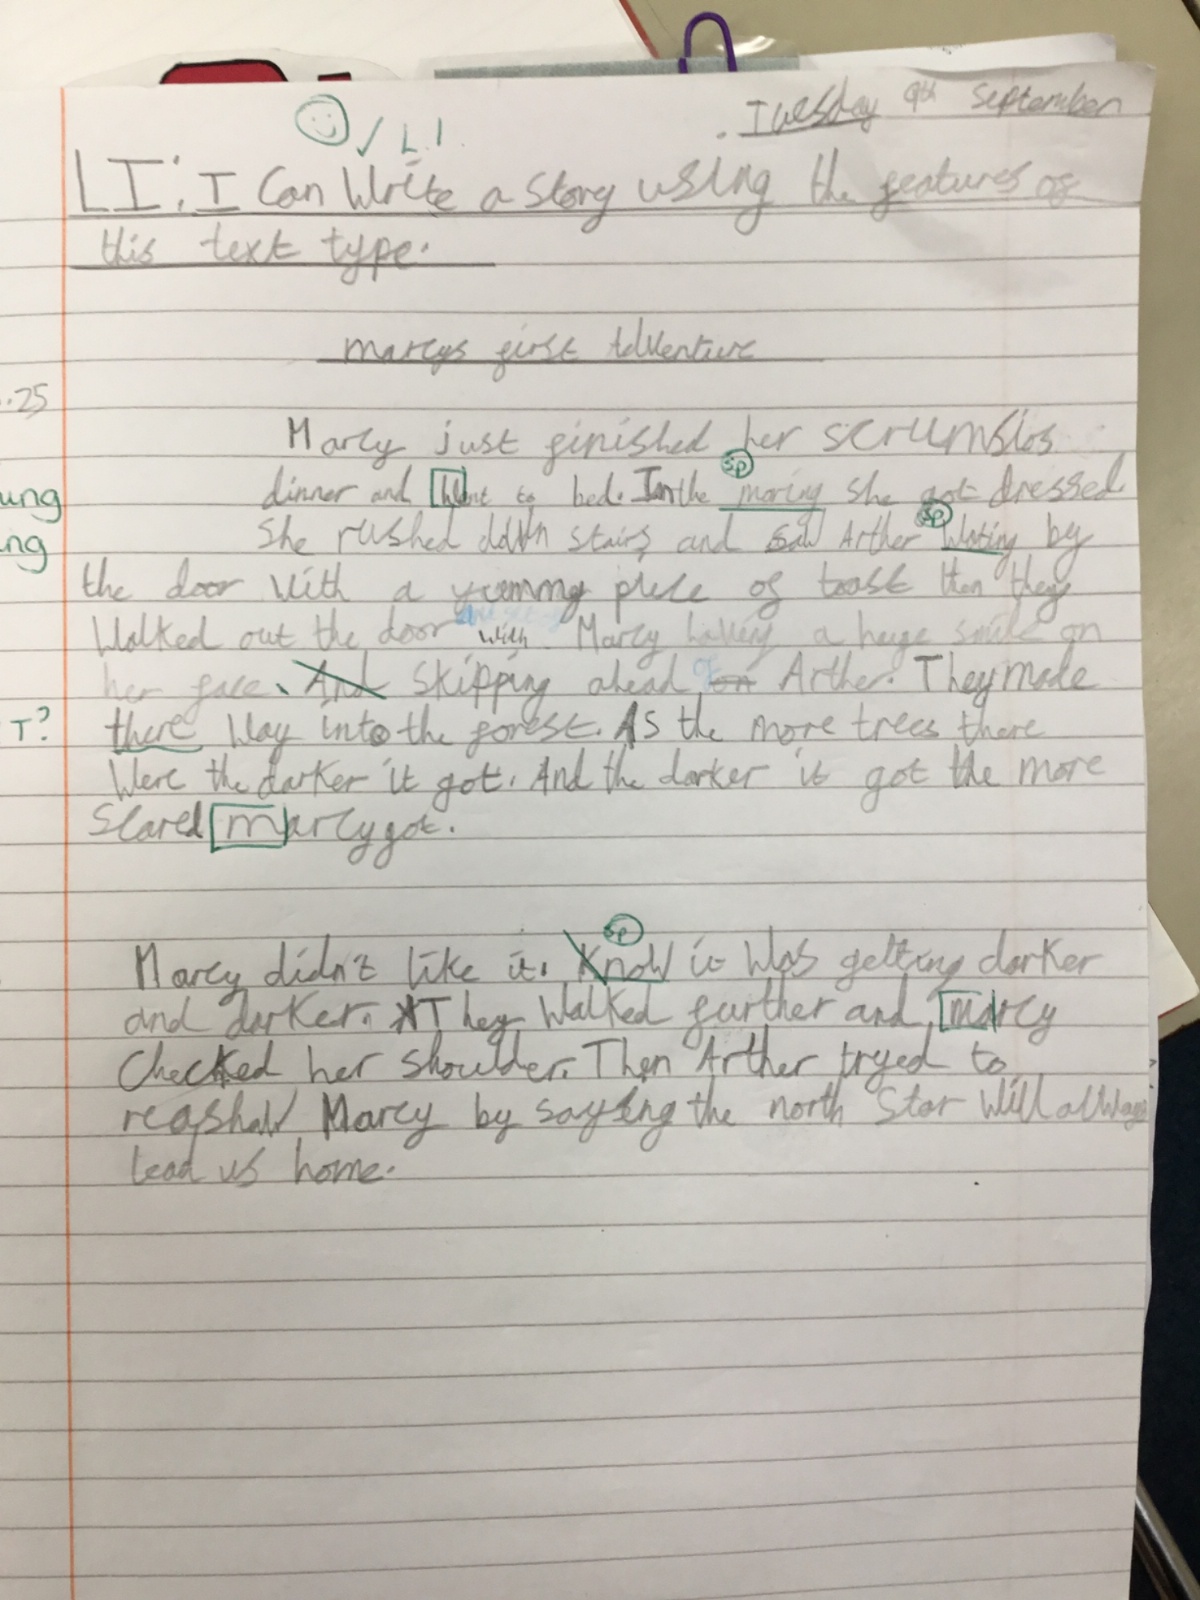 Tuesday 9th September
✓ L.I.
LI: I Can Write a Story using the features of
this text type.
marcys first Adventure
.25
Marcy just finished her scrumsios
sp
ung
dinner and Went to bed. In the moring she got dressed
sp
ng
She rushed down stairs and saw Arther Wating by
the door With a yummy piece of toast then they
Walked out the door with Marcy having a huge smile on
her face. And Skipping ahead of Arther. They made
T?
there Way into the forest. As the more trees there
Were the darker it got. And the darker it got the more
Scared marcy got.
sp
Marcy didn't like it. Know it Was getting darker
and darker. They Walked further and marcy
Checked her shoulder. Then Arther tryed to
reashaw Marcy by saying the north Star Will always
lead us home.